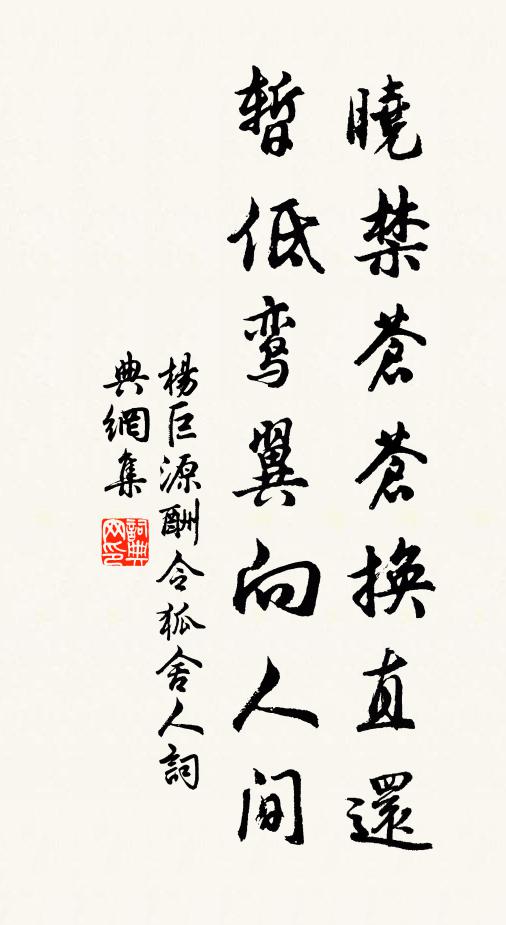 曉禁蒼蒼換直還
暫低鸾翼向人间
楊巨源酬令狐舍人詞
典網集
詞典网印